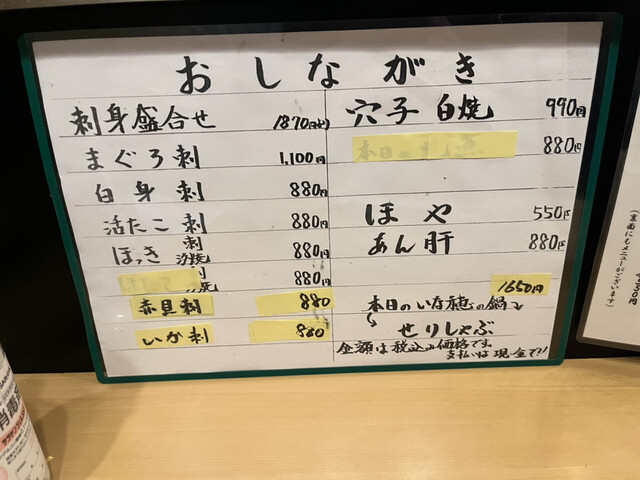 おしながき
刺身盛合せ 1870円より
まぐろ刺 1,100円
白身刺 880円
活たこ刺 880円
ほっき 刺 汐焼 880円
刺 汐焼 880円
赤貝刺 880
いか刺 880
穴子白焼 990円
本日の 880円
ほや 550円
あん肝 880円
1650円
本日のいな庵の鍋
せりしゃぶ
金額は税込み価格です。
支払いは現金で!!
(裏面にもメニューがございます)